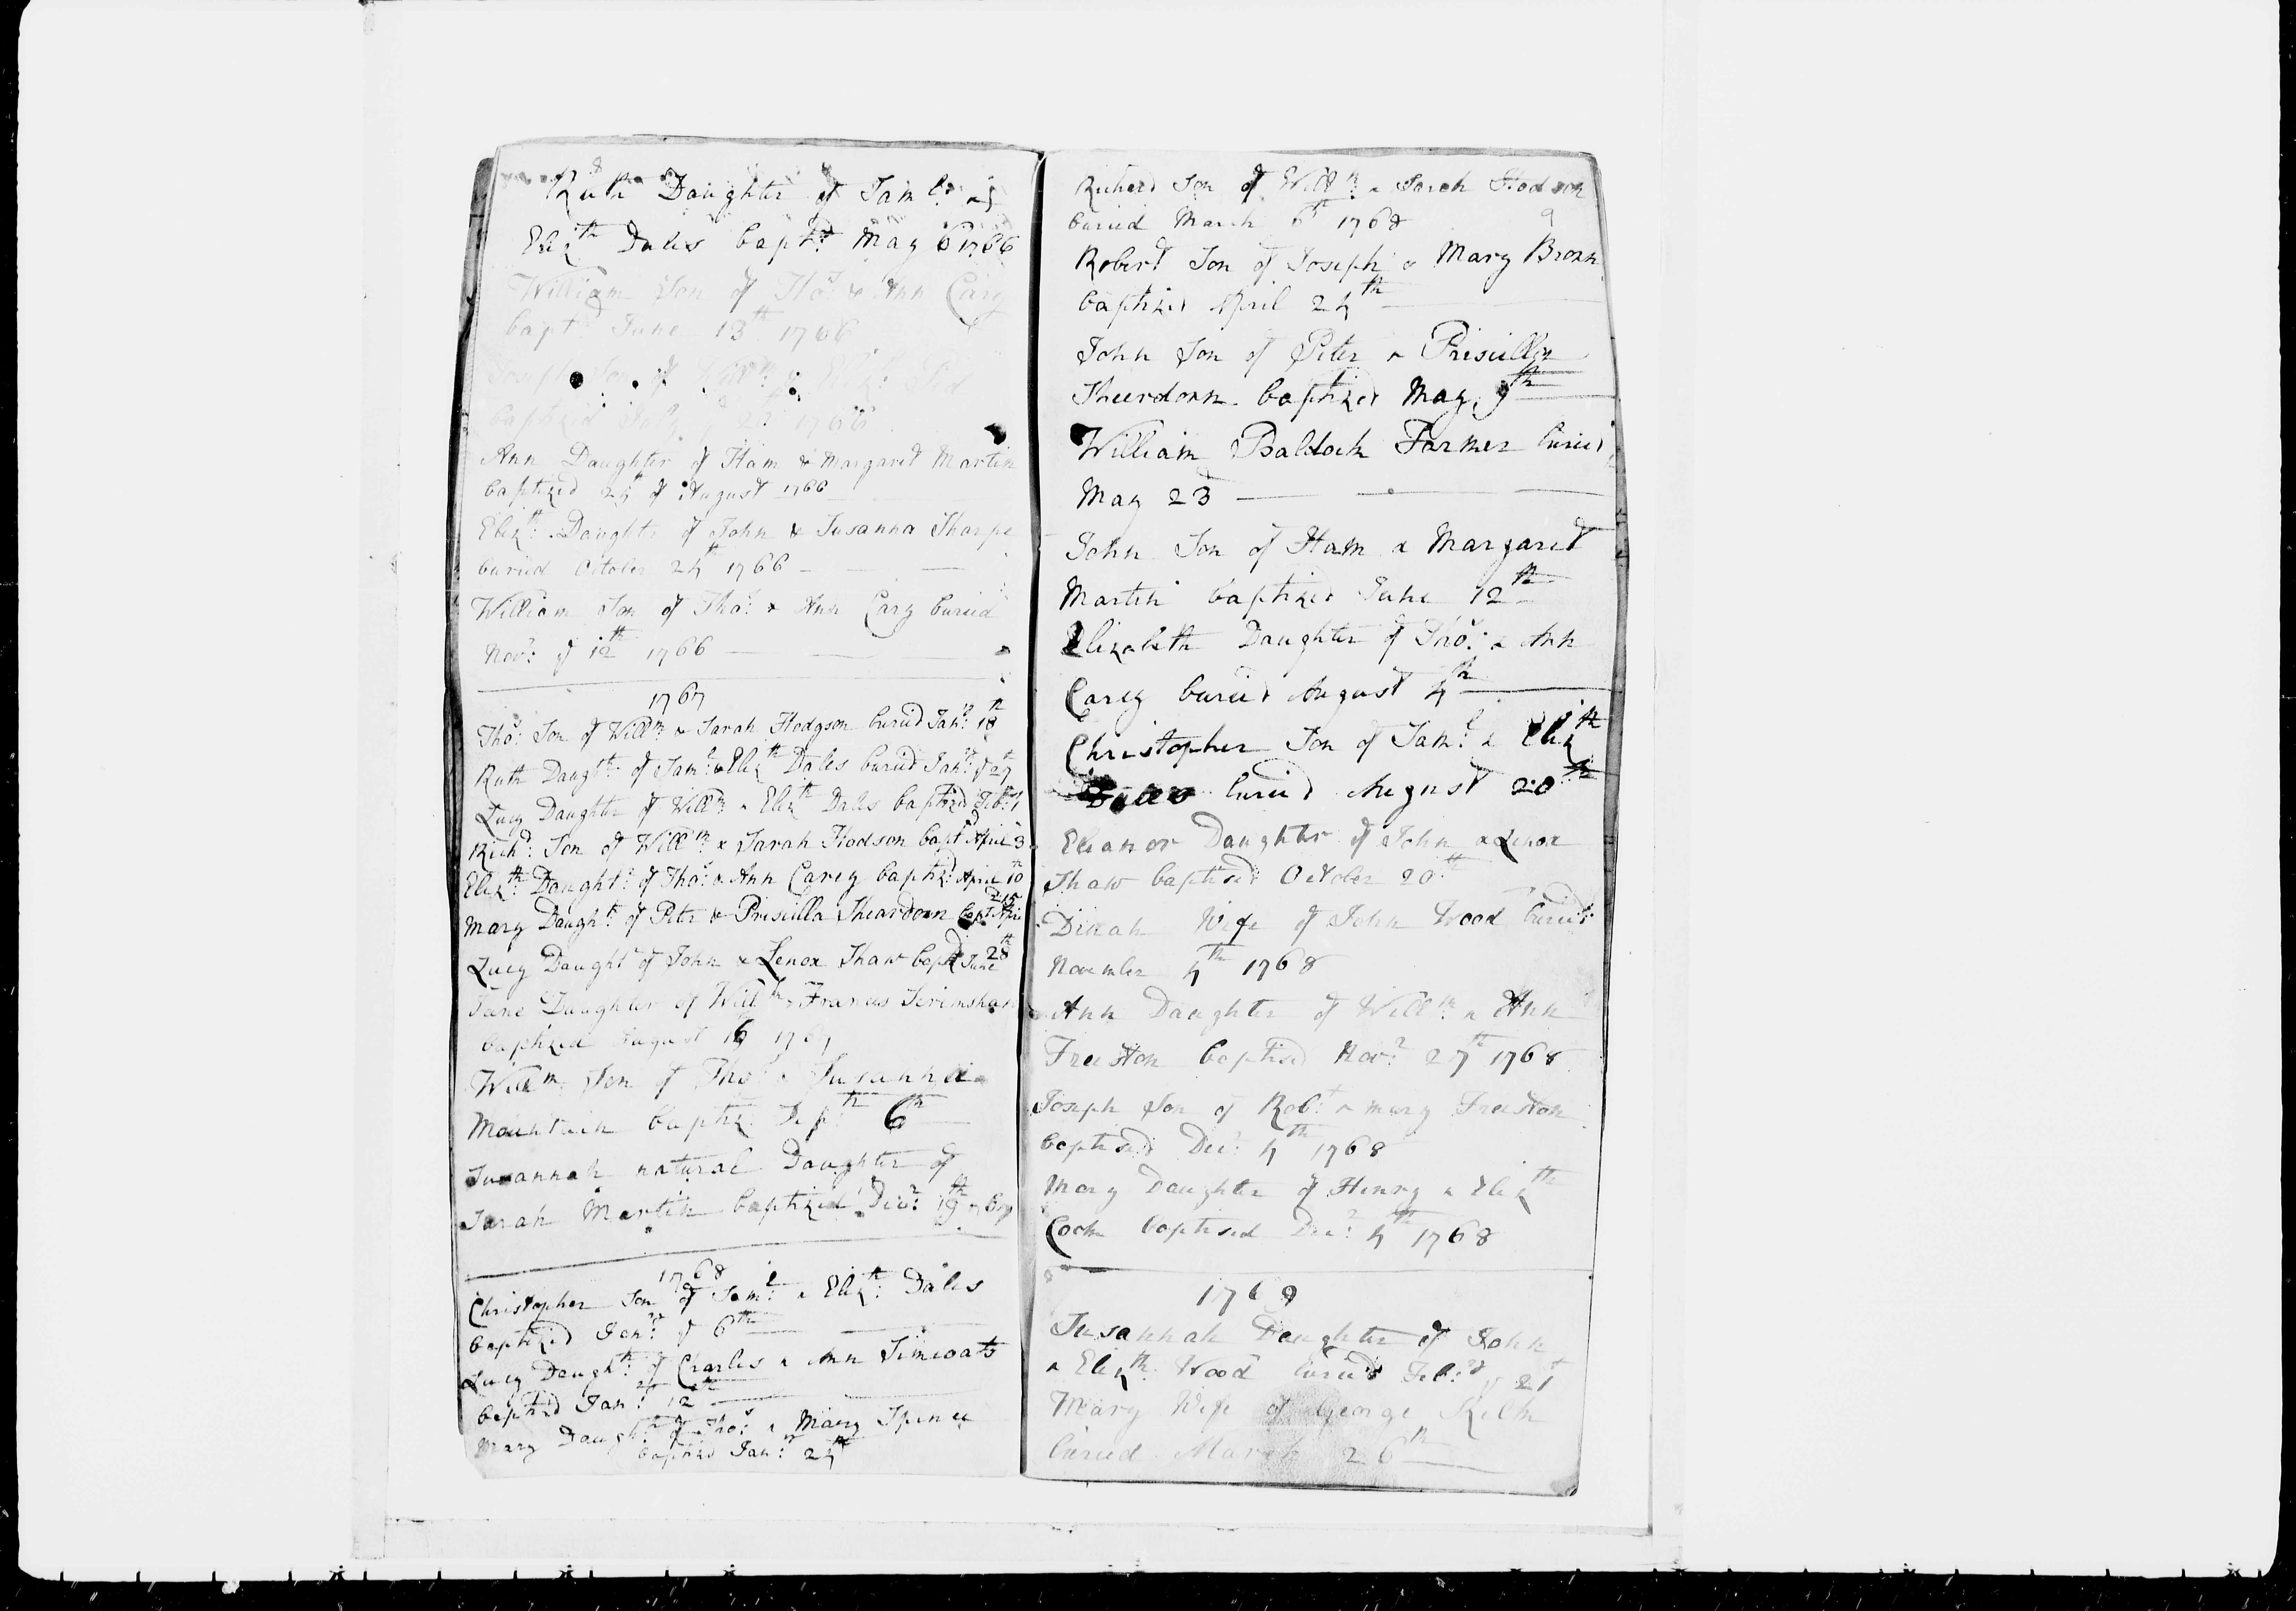 Ruth Daughter of Saml &
Elizth Dales bapt'd May 6 1766
William Son of Thos & Ann Cary
bapt June 13th 1766
Joseph Son of Willm &
baptized July 1766
Ann Daughter of Ham & Margaret Martin
baptized 24 of August 1766
Elizth Daughtr of John & Susanna Tharpe
buried October 24th 1766
William Son of Thos & Ann Cary buried
Novr ye 12th 1766
1767
Thos Son of Willm & Sarah Hodgson buried Janry 18th
Ruth Daughtr of Saml & Elizth Dales buried Janry ye 27th
Lucy Daughter of Willm & Elizth Dales baptized Febry 1
Richd Son of Willm & Sarah Hodson bapt'd April 3
Elizth Daughtr of Thos & Ann Carey baptiz'd April 10th
Mary Daughtr of Peter & Priscilla Sheardown bapt April
Lucy Daught of John & Lenox Shaw bapt June 28th
Jane Daughter of Willm & Frances Scrimshaw
baptized August 16 1767
Willm Son of Thos & Susanna
Mountain baptiz Sept 6th
Susannah natural Daughter of
Sarah Martin baptized Decr 19th 1767
1768
Christopher Son of Saml & Elizth Dales
baptized Janry ye 6th
Lucy Daughtr of Charles & Ann Simcoats
baptized Janry 12th
Mary Daughtr of Thos & Mary Spence
baptizd Janry 24th
Richard Son of Willm & Sarah Hodson
buried March 6th 1768
9
Robert Son of Joseph & Mary Brown
baptized April 24th
John Son of Peter & Priscilla
Sheerdown baptized May 9th
William Baldock Farmer buried
May 23d
John Son of Ham & Margaret
Martin baptized June 12th
Elizabeth Daughter of Thos & Ann
Carey buried August 4th
Christopher Son of Saml & Elizth
Dales buried August 20th
Eleanor Daughter of John & Lenox
Shaw baptised October 20th
Dinah Wife of John Wood buried
November 4th 1768
Ann Daughter of Willm & Ann
Freeston baptised Novr 27th 1768
Joseph Son of Robt & Mary Freeston
baptised Decr 4th 1768
Mary Daughter of Henry & Elizth
Cock baptised Decr 4th 1768
1769
Susannah Daughter of John
& Elizth Wood buried Febry ye 21st
Mary Wife of George Kelk
buried March 26th